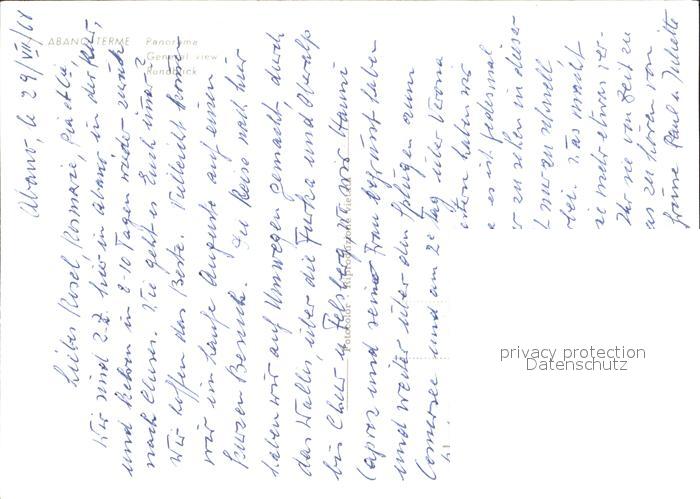 ABANO TERME Panorama
General view
Rundblick
Abano, le 29/VII/68
Liebe Rosel, Rosmarie,
Wir sind z.Z. hier in Abano in der Kur,
und kehren in 8-10 Tagen wieder zurück
nach Wie geht es Euch immer?
Wir hoffen das Beste. Vielleicht kommen
wir im Laufe Augusts auf einen
kurzen Besuch. Die Reise nach hier
haben wir auf Umwegen gemacht, durch
das Wallis, über die Furka und Oberalp
bis Chur u. Felsberg, wo Hanni
Capraz und seine Frau begrüsst haben
und weiter über den Splügen zum
Comersee und am 2e Tag über Verona
haben wir
es ist jedesmal
zu sehen in dieser
nur zu schnell
bei. Was macht
sie mehr etwas
Ihr sie von Zeit zu
uns zu hören von
Paul u. Juliette
privacy protection
Datenschutz